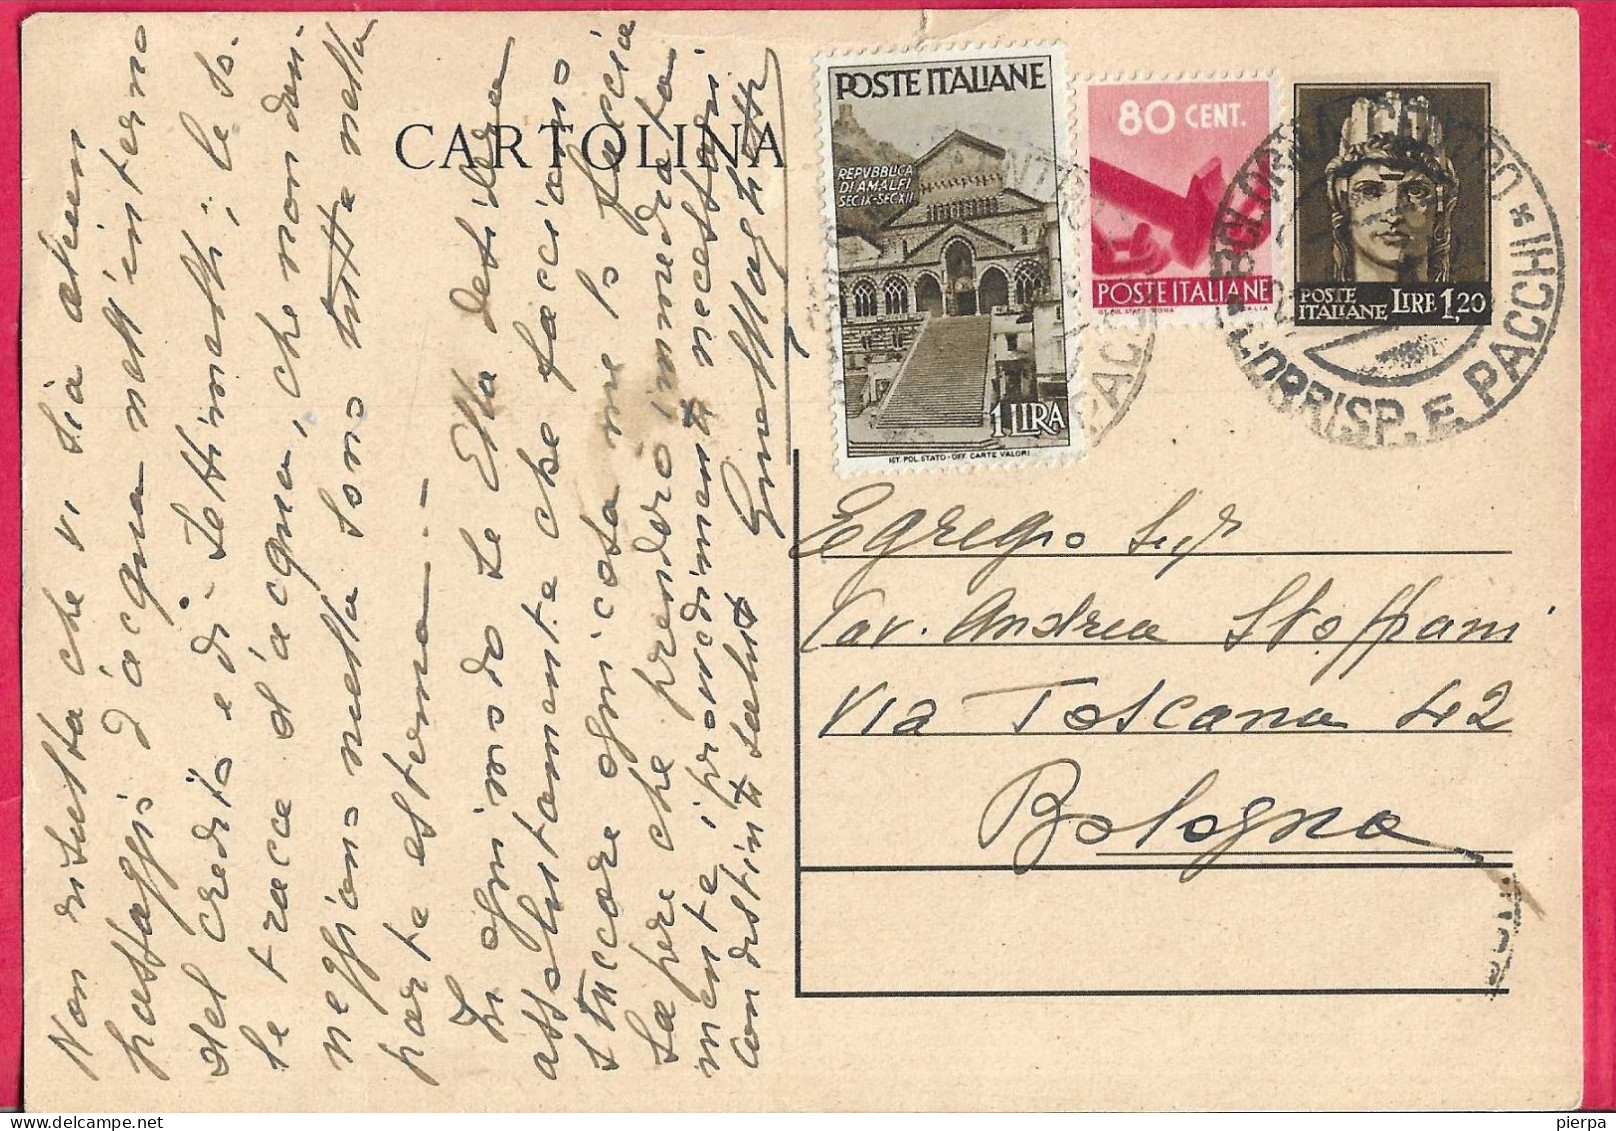 CARTOLINA
POSTE ITALIANE
REPVBBLICA
DI AMALFI
SEC IX-SEC XII
1 LIRA
IST. POL. STATO - OFF. CARTE VALORI
80 CENT.
POSTE ITALIANE
IST. POL. STATO - ROMA ITALIA
POSTE
ITALIANE LIRE 1,20
BOLOGNA CENTRO
CORRISP. E PACCHI
Egregio Sig
Cav. Andrea Stoffani
Via Toscana 42
Bologna
Non risulta che vi sia alcun
passaggio d'acqua nell'interno
del credito e di
le tracce d'acqua, che non
sono tutte nella
parte esterna. -
In ogni modo se Ella desidera
assolutamente che facciamo
stuccare ogni cosa me lo faccia
sapere che prenderò immediata
mente i provvedimenti necessari
con distinti saluti
pierpa